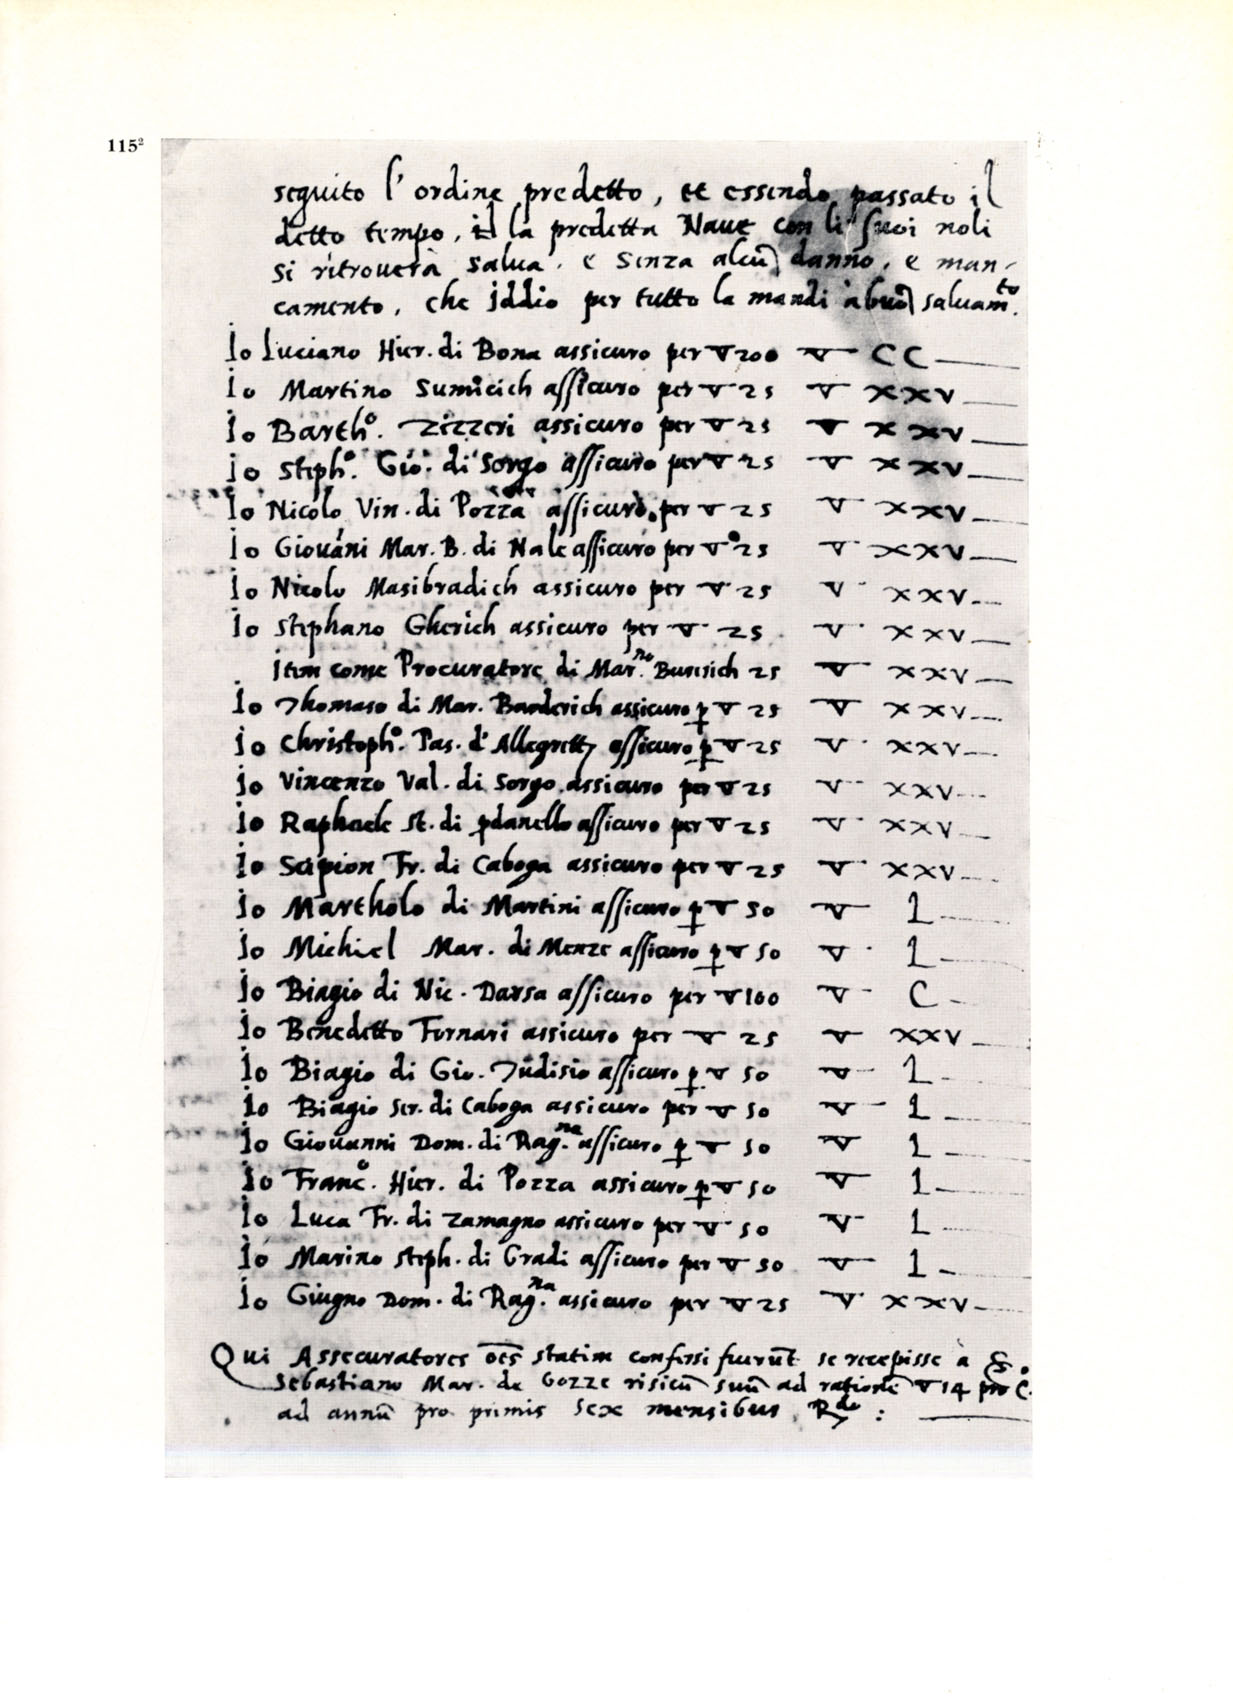 115²
seguito l'ordine predetto, et essendo passato il
detto tempo, la predetta Naue con li suoi noli
si ritrouerà salua, e senza alcū danno, e man-
camento, che iddio per tutto la mandi à buō saluam.to
Io Luciano Hier. di Bona assicuro per ∇ 200 ∇ CC
Io Martino Sumicich assicuro per ∇ 25 ∇ XXV
Io Barth°. Zizzeri assicuro per ∇ 25 ∇ XXV
Io Steph°. Gio. di Sorgo assicuro per ∇ 25 ∇ XXV
Io Nicolo Vin. di Pozza assicuro per ∇ 25 ∇ XXV
Io Giouāni Mar. B. di Nale assicuro per ∇ 25 ∇ XXV
Io Nicolo Masibradich assicuro per ∇ 25 ∇ XXV
Io Stephano Gherich assicuro per ∇ 25 ∇ XXV
Item come Procuratore di Mar.no Buresich 25 ∇ XXV
Io Thomaso di Mar. Banderich assicuro ꝑ ∇ 25 ∇ XXV
Io Christoph°. Pas. d'Allegretti assicuro ꝑ ∇ 25 ∇ XXV
Io Vincenzo Val. di Sorgo assicuro per ∇ 25 ∇ XXV
Io Raphaele St. di ꝑdanello assicuro per ∇ 25 ∇ XXV
Io Scipion Fr. di Caboga assicuro per ∇ 25 ∇ XXV
Io Martholo di Martini assicuro ꝑ ∇ 50 ∇ L
Io Michiel Mar. di Menze assicuro ꝑ ∇ 50 ∇ L
Io Biagio di Nic. Darsa assicuro per ∇ 100 ∇ C
Io Benedetto Fornari assicuro per ∇ 25 ∇ XXV
Io Biagio di Gio. Iudisio assicuro ꝑ ∇ 50 ∇ L
Io Biagio Ser. di Caboga assicuro per ∇ 50 ∇ L
Io Giouanni Dom. di Rag.na assicuro ꝑ ∇ 50 ∇ L
Io Franc°. Hier. di Pozza assicuro ꝑ ∇ 50 ∇ L
Io Luca Fr. di Zamagno assicuro per ∇ 50 ∇ L
Io Marino Steph. di Gradi assicuro per ∇ 50 ∇ L
Io Giugno Dom. di Rag.na assicuro per ∇ 25 ∇ XXV
Qui Assecuratores oēs statim confessi fuerūt se recepisse à
Sebastiano Mar. de Gozze risicū suū ad rationē ∇ 14 pro C.°
ad annū pro primis sex mensibus